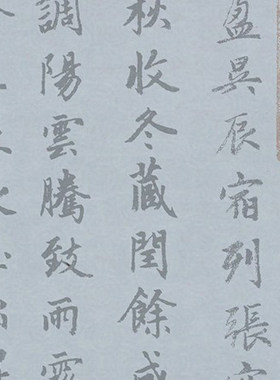 盈昃辰宿列張寒
秋收冬藏閏餘成
調陽雲騰致雨露